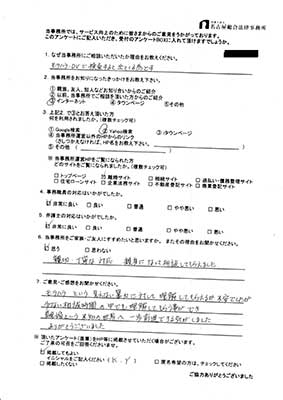 名古屋総合法律事務所
当事務所では、サービス向上のために皆さまからのご意見をうかがっております。
このアンケートにご記入いただき、受付のアンケートBOXに入れて頂けますでしょうか。
1. なぜ当事務所にご相談いただいたか理由をお教えください。
モラハラ・DVで検索すると
2. 当事務所をお知りになったきっかけをお教え下さい。
①親族、友人、知人などお知り合いからのご紹介
②以前当事務所をご相談を頂いた方からのご紹介
③インターネット ④タウンページ ⑤その他
3. 上記2で③とお答え頂いた方
何を利用されましたか。(複数チェック可)
①Google検索 ②Yahoo検索 ③タウンページ
④当事務所運営以外のHPからのリンク
(さしつかえなければ、HP名をお教え下さい。)
⑤その他 ( )
※当事務所運営HPをご覧になられた方
どのサイトをご覧になられましたか。(複数チェック可)
□トップページ ☑離婚サイト □相続サイト □過払い・債務整理サイト
□住宅ローンサイト □企業法務サイト □不動産登記サイト □商業登記サイト
4. 事務職員の対応はいかがでしたか。
☑非常に良い 良い 普通 やや悪い 悪い
5. 弁護士の対応はいかがでしたか。
☑非常に良い 良い 普通 やや悪い 悪い
6. 当事務所をご家族・ご友人にすすめたいと思いますか。またその理由をお聞かせください。
☑思う □思わない
親切・丁寧な対応 親身になって相談してもらえました
7. ご意見・ご感想をお聞かせください。
モラハラという見えない暴力に対して理解してもらえるか不安でしたが
少ない相談時間の中でも理解してもらう事ができ
離婚という未知の世界へ一歩前進できる気がしました
ありがとうございました
※頂いたアンケート(直筆)をHP等に掲載させていただく場合がございます。
ご了承の可否をご回答くださいませ。
☑掲載してもよい
イニシャルをご記入ください (K.Y) □匿名希望の方は、チェックしてください
□掲載したくない
ご協力ありがとうございました